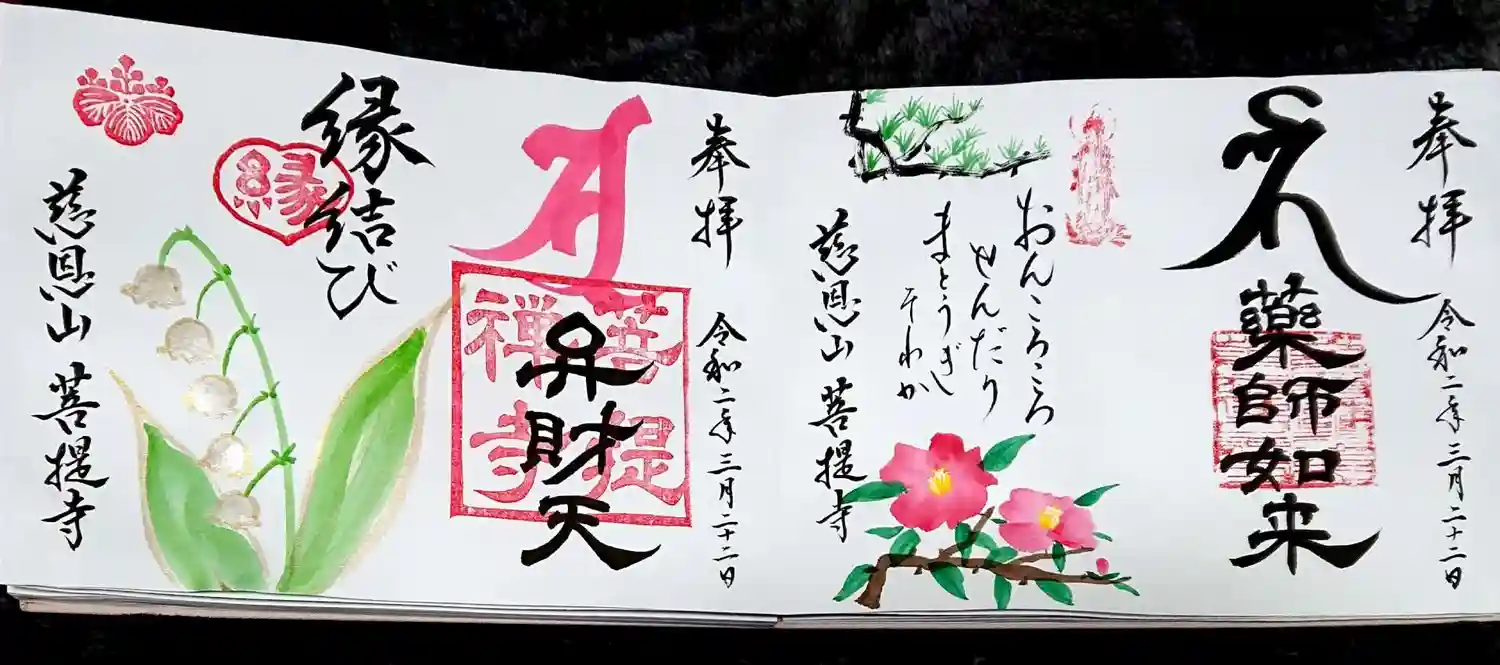 奉拝 令和二年三月二十二日
藥師如来
おんころころ
せんだり
まとうぎし
そわか
慈恩山 菩提寺
奉拝 令和二年三月二十二日
弁財天
菩提
禅寺
縁結び
縁
慈恩山 菩提寺